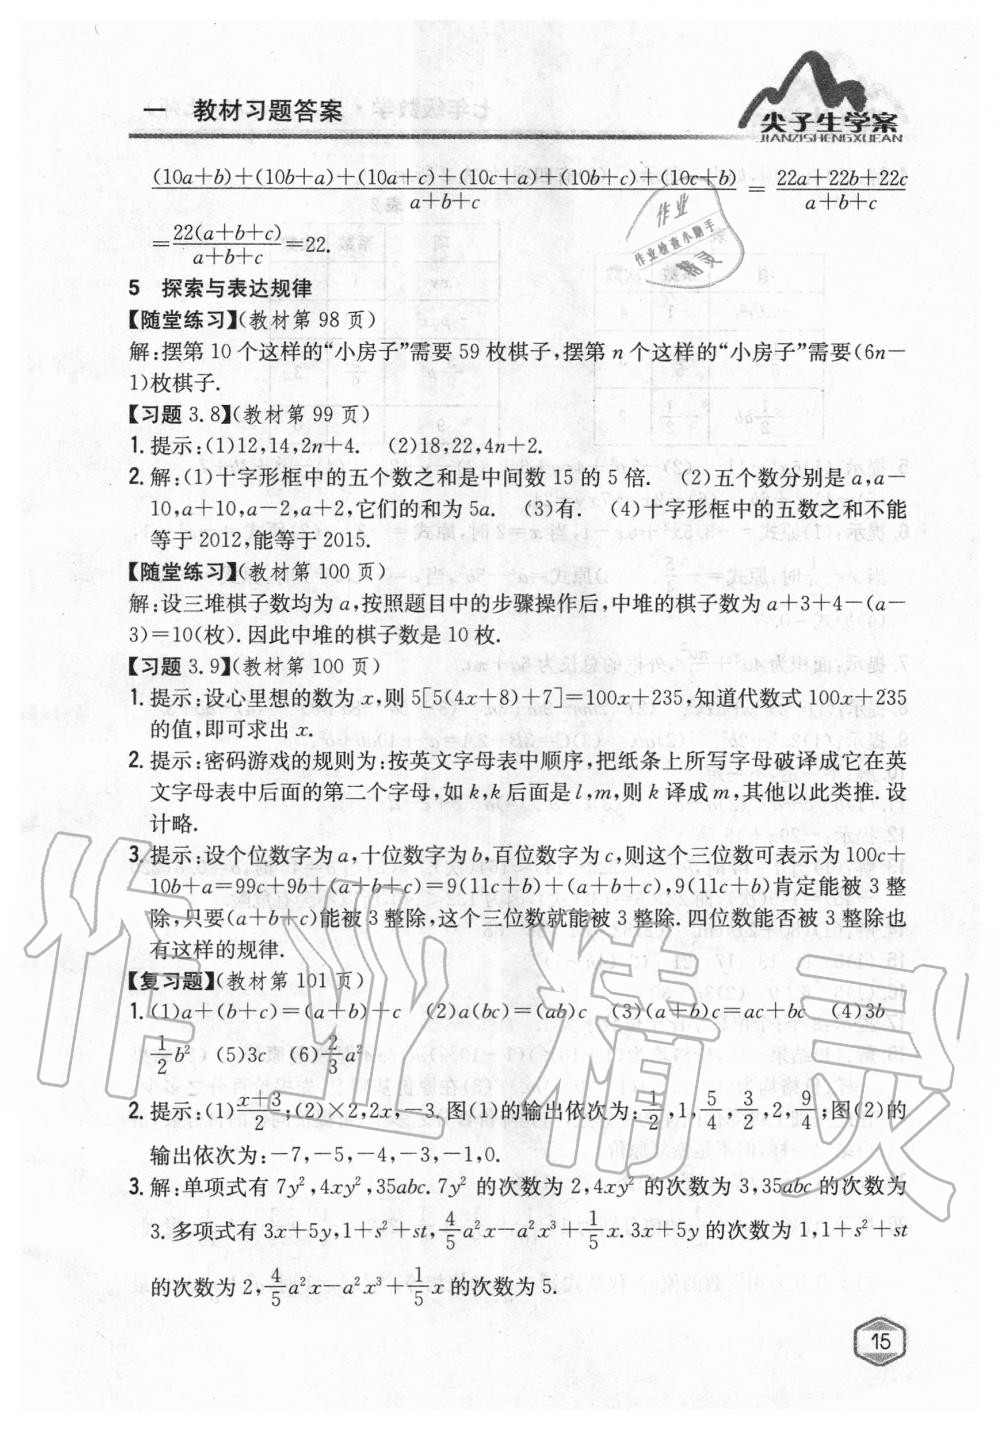 一　教材习题答案
尖子生学案
JIANZISHENGXUEAN
\frac{(10a+b)+(10b+a)+(10a+c)+(10c+a)+(10b+c)+(10c+b)}{a+b+c} = \frac{22a+22b+22c}{a+b+c}
=\frac{22(a+b+c)}{a+b+c}=22.
作业
作业检查小助手
精灵
5　探索与表达规律
【随堂练习】(教材第 98 页)
解:摆第 10 个这样的“小房子”需要 59 枚棋子,摆第 n 个这样的“小房子”需要(6n-
1)枚棋子.
【习题 3.8】(教材第 99 页)
1. 提示:(1)12,14,2n+4.　(2)18,22,4n+2.
2. 解:(1)十字形框中的五个数之和是中间数 15 的 5 倍.　(2)五个数分别是 a,a-
10,a+10,a-2,a+2,它们的和为 5a.　(3)有.　(4)十字形框中的五数之和不能
等于 2012,能等于 2015.
【随堂练习】(教材第 100 页)
解:设三堆棋子数均为 a,按照题目中的步骤操作后,中堆的棋子数为 a+3+4-(a-
3)=10(枚).因此中堆的棋子数是 10 枚.
【习题 3.9】(教材第 100 页)
1. 提示:设心里想的数为 x,则 5[5(4x+8)+7]=100x+235,知道代数式 100x+235
的值,即可求出 x.
2. 提示:密码游戏的规则为:按英文字母表中顺序,把纸条上所写字母破译成它在英
文字母表中后面的第二个字母,如 k,k 后面是 l,m,则 k 译成 m,其他以此类推.设
计略.
3. 提示:设个位数字为 a,十位数字为 b,百位数字为 c,则这个三位数可表示为 100c+
10b+a=99c+9b+(a+b+c)=9(11c+b)+(a+b+c),9(11c+b)肯定能被 3 整
除,只要(a+b+c)能被 3 整除,这个三位数就能被 3 整除.四位数能否被 3 整除也
有这样的规律.
【复习题】(教材第 101 页)
1. (1)a+(b+c)=(a+b)+c　(2)a(bc)=(ab)c　(3)(a+b)c=ac+bc　(4)3b-
\frac{1}{2}b²　(5)3c　(6)\frac{2}{3}a²
2. 提示:(1)\frac{x+3}{2};(2)×2,2x,-3.图(1)的输出依次为:\frac{1}{2},1,\frac{5}{4},\frac{3}{2},2,\frac{9}{4};图(2)的
输出依次为:-7,-5,-4,-3,-1,0.
3. 解:单项式有 7y²,4xy²,35abc.7y² 的次数为 2,4xy² 的次数为 3,35abc 的次数为
3.多项式有 3x+5y,1+s²+st,\frac{4}{5}a²x-a²x³+\frac{1}{5}x.3x+5y 的次数为 1,1+s²+st
的次数为 2,\frac{4}{5}a²x-a²x³+\frac{1}{5}x 的次数为 5.
作业精灵
15